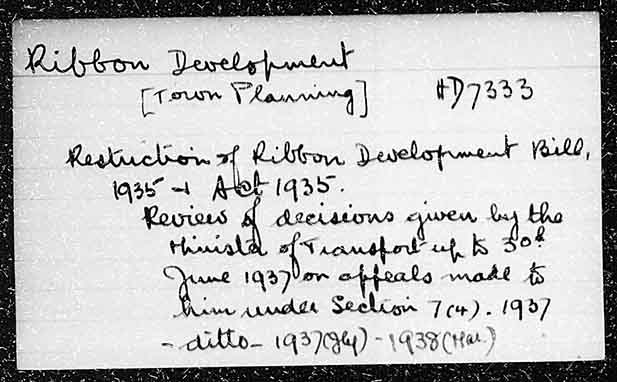 Ribbon Development
[Town Planning] HD7333
Restriction of Ribbon Development Bill,
1935 + Act 1935.
Review of decisions given by the
Minister of Transport up to 30th
June 1937 on appeals made to
him under Section 7(4). 1937
- ditto - 1937 (Jly) - 1938 (Mar.)